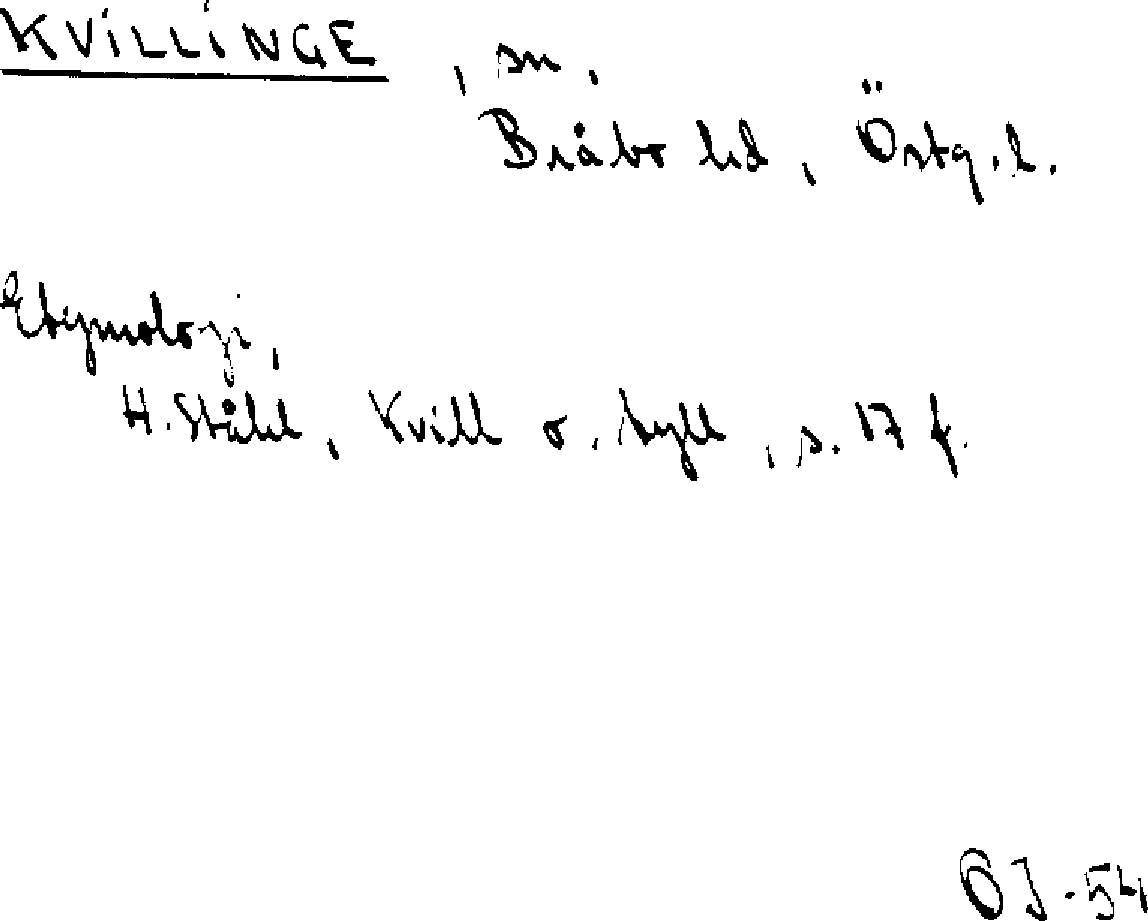 KVILLINGE, sn,
Bråbo hd, Östg. l.
Etymologi,
H. Ståhl, Kvill o. tyll, s. 17 f.
OJ - 54